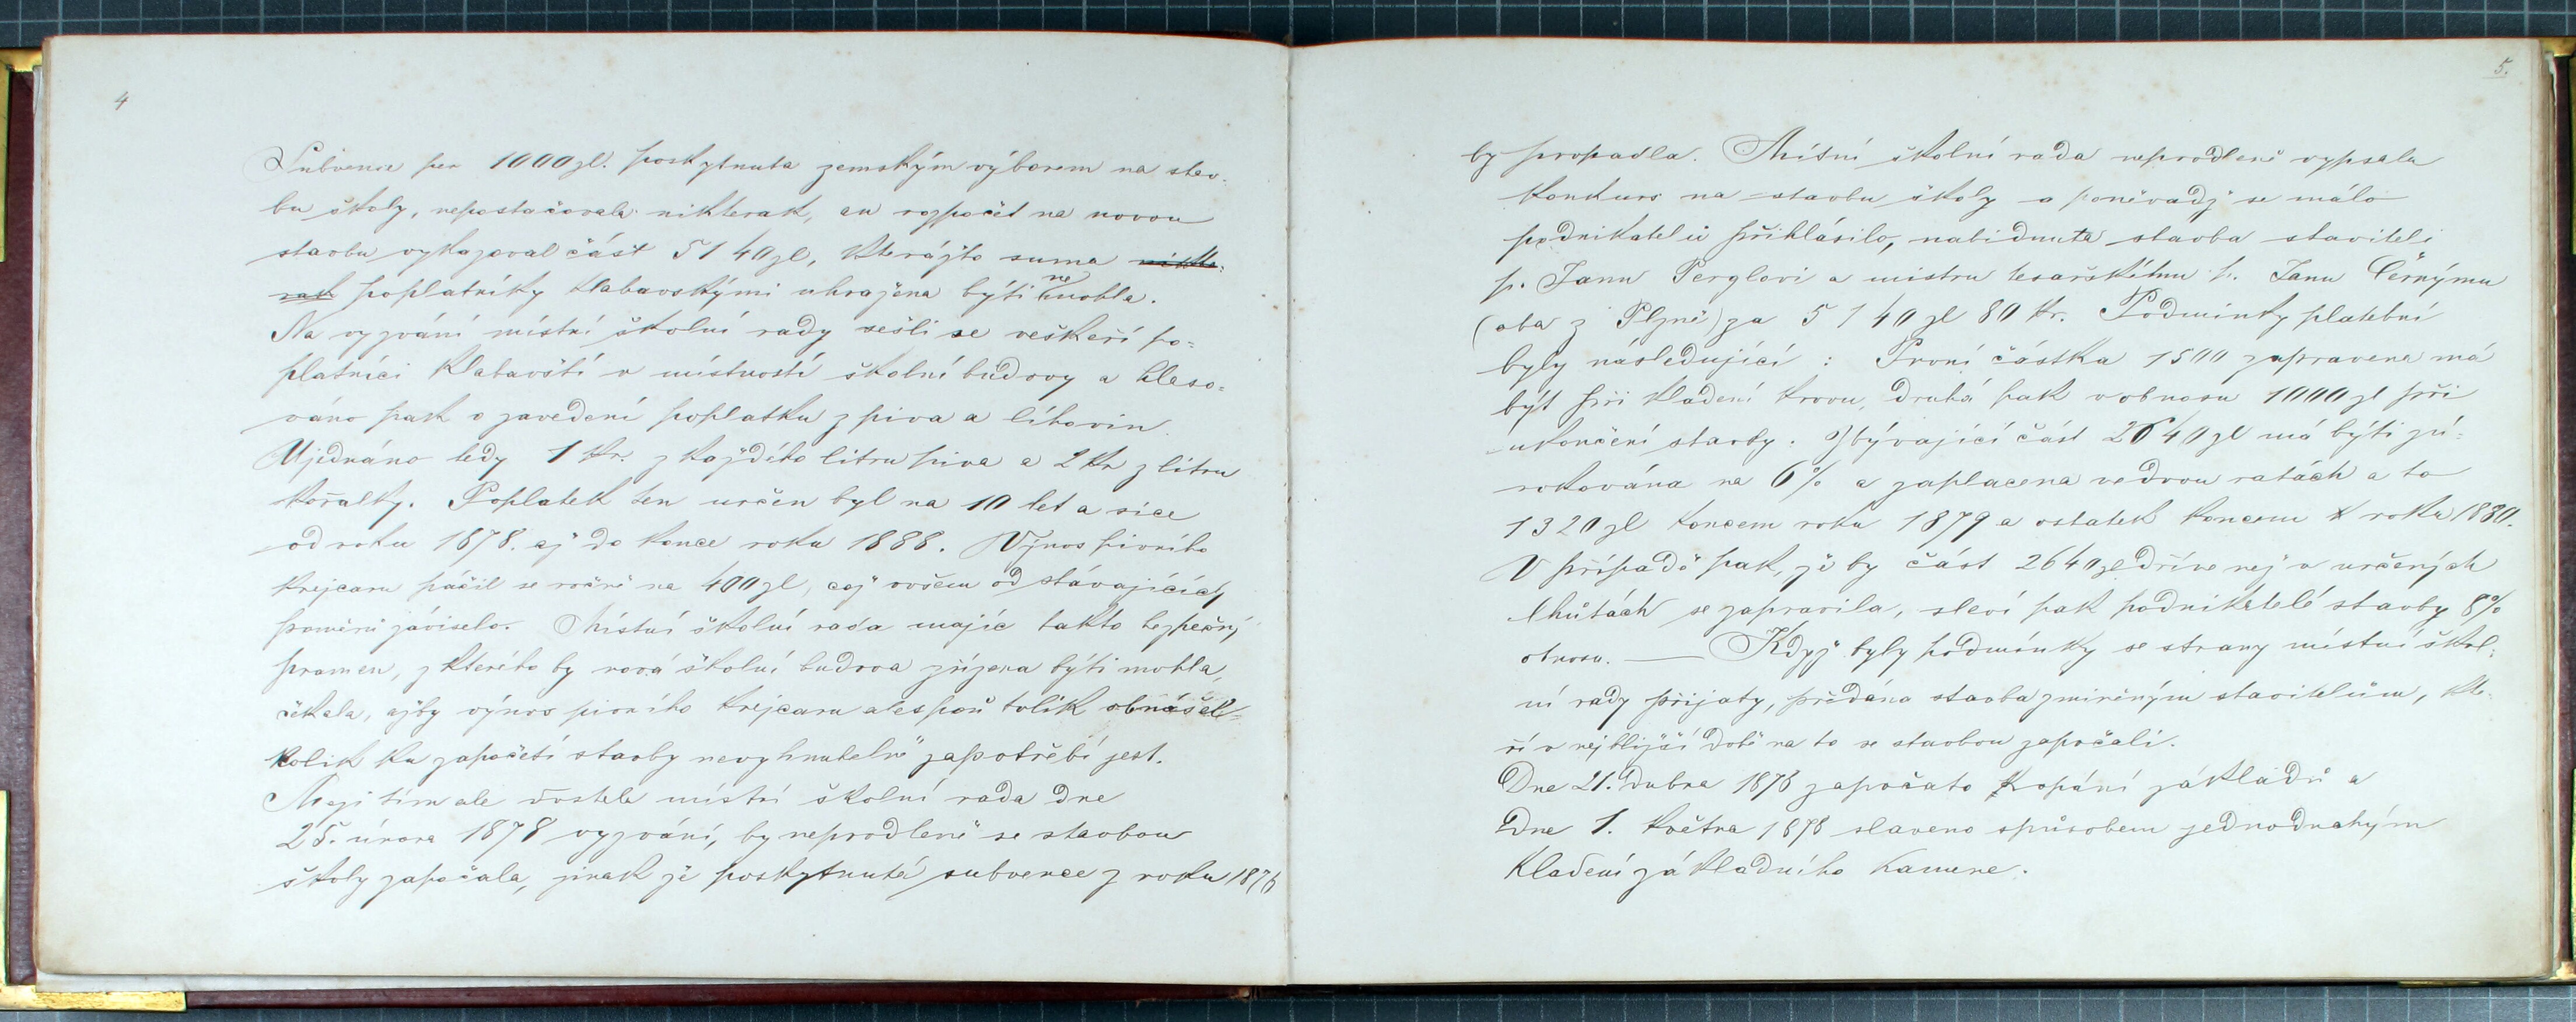 4
Subvence per 1000 zl. poskytnuta zemským výborem na stav-
bu školy, nepostačovala nikterak, an rozpočet na novou
stavbu vykazoval část 5140 zl, kterážto suma nikte-
rak poplatníky klabavskými uhražena býti nemohla.
Na vyzvání místní školní rady sešli se veškeří po-
platníci klabavští v místnosti školní budovy a hlaso-
váno pak o zavedení poplatku z piva a líhovin.
Ujednáno tedy 1 kr. z každého litru piva a 2 kr z litru
kořalky. Poplatek ten určen byl na 10 let a sice
od roku 1878. až do konce roku 1888. Výnos pivního
krejcaru páčil se ročně na 400 zl, což ovšem od stávajících
poměrů záviselo. Místní školní rada majíc takto bezpečný
pramen, z kterého by nová školní budova zřízena býti mohla,
čekala, ažby výnos pivního krejcaru alespoň tolik obnášel
kolik ku započetí stavby nevyhnutelně zapotřebí jest.
Mezi tím ale dostala místní školní rada dne
25. února 1878 vyzvání, by neprodleně se stavbou
školy započala, jinak že poskytnutá subvence z roku 1876
5.
by propadla. Místní školní rada neprodleně vypsala
konkurs na stavbu školy a poněvadž se málo
podnikatelů přihlásilo, nabídnuta stavba staviteli
p. Janu Perglovi a mistru tesařskému p. Janu Černýmu
(oba z Plzně) za 5140 zl 80 kr. Podmínky platební
byly následující : První částka 1500 zapravena má
být při kladení krovu, druhá pak v obnosu 1000 zl při
ukončení stavby. Zbývající část 2640 zl má býti zú-
rokována na 6% a zaplacena ve dvou ratách a to
1320 zl koncem roku 1879 a ostatek koncem roku 1880.
V případě pak, že by část 2640 zl dříve než v určených
lhůtách se zapravila, sleví pak podnikatelé stavby 8%
obnosu. — Když byly podmínky se strany místní škol-
ní rady přijaty, předána stavba zmíněným stavitelům, kte-
ří v nejbližší době na to se stavbou započali.
Dne 21. dubna 1878 započato kopání základů a
Dne 1. května 1878 slaveno spůsobem jednoduchým
kladení základního kamene.